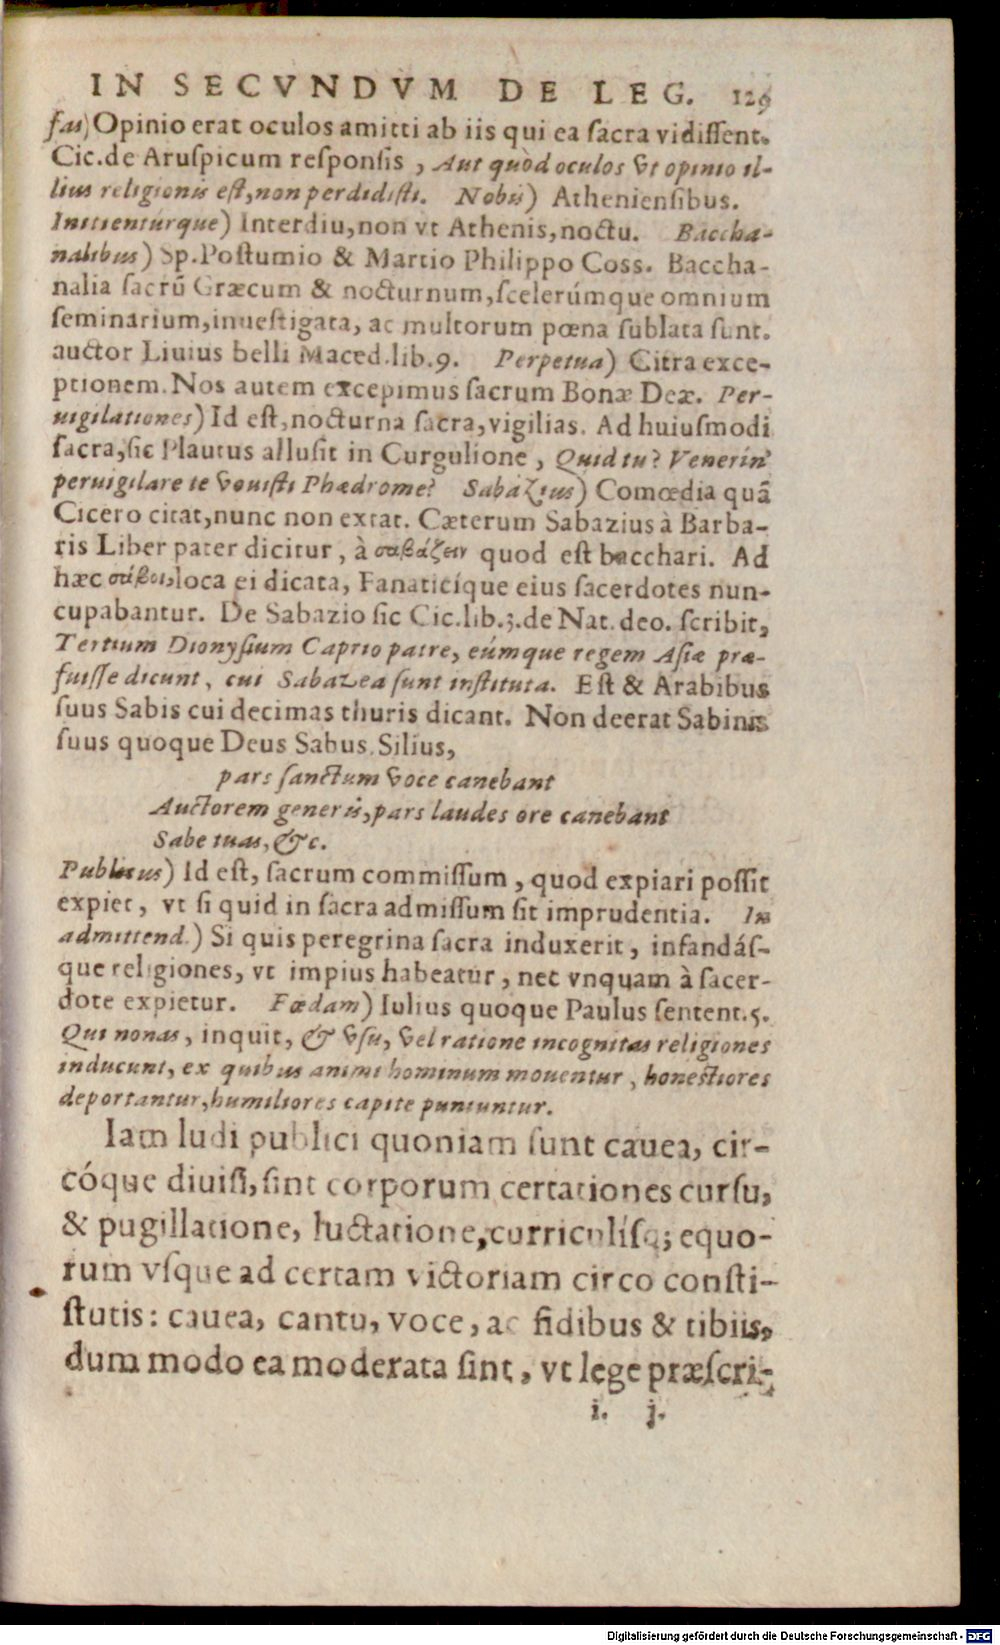 IN SECVNDVM DE LEG. 129
fas) Opinio erat oculos amitti ab iis qui ea sacra vidissent.
Cic. de Aruspicum responsis, Aut quòd oculos vt opinio il-
lius religionis est, non perdidisti. Nobis) Atheniensibus.
Initienturque) Interdiu, non vt Athenis, noctu. Baccha-
nalibus) Sp. Postumio & Martio Philippo Coss. Baccha-
nalia sacrũ Græcum & nocturnum, scelerúmque omnium
seminarium, inuestigata, ac multorum pœna sublata sunt.
auctor Liuius belli Maced. lib. 9. Perpetua) Citra exce-
ptionem. Nos autem excepimus sacrum Bonæ Deæ. Per-
uigilationes) Id est, nocturna sacra, vigilias. Ad huiusmodi
sacra, sic Plautus allusit in Curgulione, Quid tu? Venerin'
peruigilare te vouisti Phædrome? Sabazius) Comœdia quã
Cicero citat, nunc non extat. Cæterum Sabazius à Barba-
ris Liber pater dicitur, à σαβάζειν quod est bacchari. Ad
hæc σάβοι, loca ei dicata, Fanaticíque eius sacerdotes nun-
cupabantur. De Sabazio sic Cic. lib. 3. de Nat. deo. scribit,
Tertium Dionysium Caprio patre, eúmque regem Asiæ præ-
fuisse dicunt, cui Sabazea sunt instituta. Est & Arabibus
suus Sabis cui decimas thuris dicant. Non deerat Sabinis
suus quoque Deus Sabus. Silius,
pars sanctum voce canebant
Auctorem generis, pars laudes ore canebant
Sabe tuas, &c.
Publicus) Id est, sacrum commissum, quod expiari possit
expiet, vt si quid in sacra admissum sit imprudentia. In
admittend.) Si quis peregrina sacra induxerit, infandás-
que religiones, vt impius habeatur, nec vnquam à sacer-
dote expietur. Fœdam) Iulius quoque Paulus sentent. 5.
Qui nonas, inquit, & vsu, vel ratione incognitas religiones
inducunt, ex quibus animi hominum mouentur, honestiores
deportantur, humiliores capite puniuntur.
Iam ludi publici quoniam sunt cauea, cir-
cóque diuisi, sint corporum certationes cursu,
& pugillatione, luctatione, curriculísq; equo-
rum vsque ad certam victoriam circo consti-
stutis: cauea, cantu, voce, ac fidibus & tibiis,
dum modo ea moderata sint, vt lege præscri-
i. j.
Digitalisierung gefördert durch die Deutsche Forschungsgemeinschaft - DFG